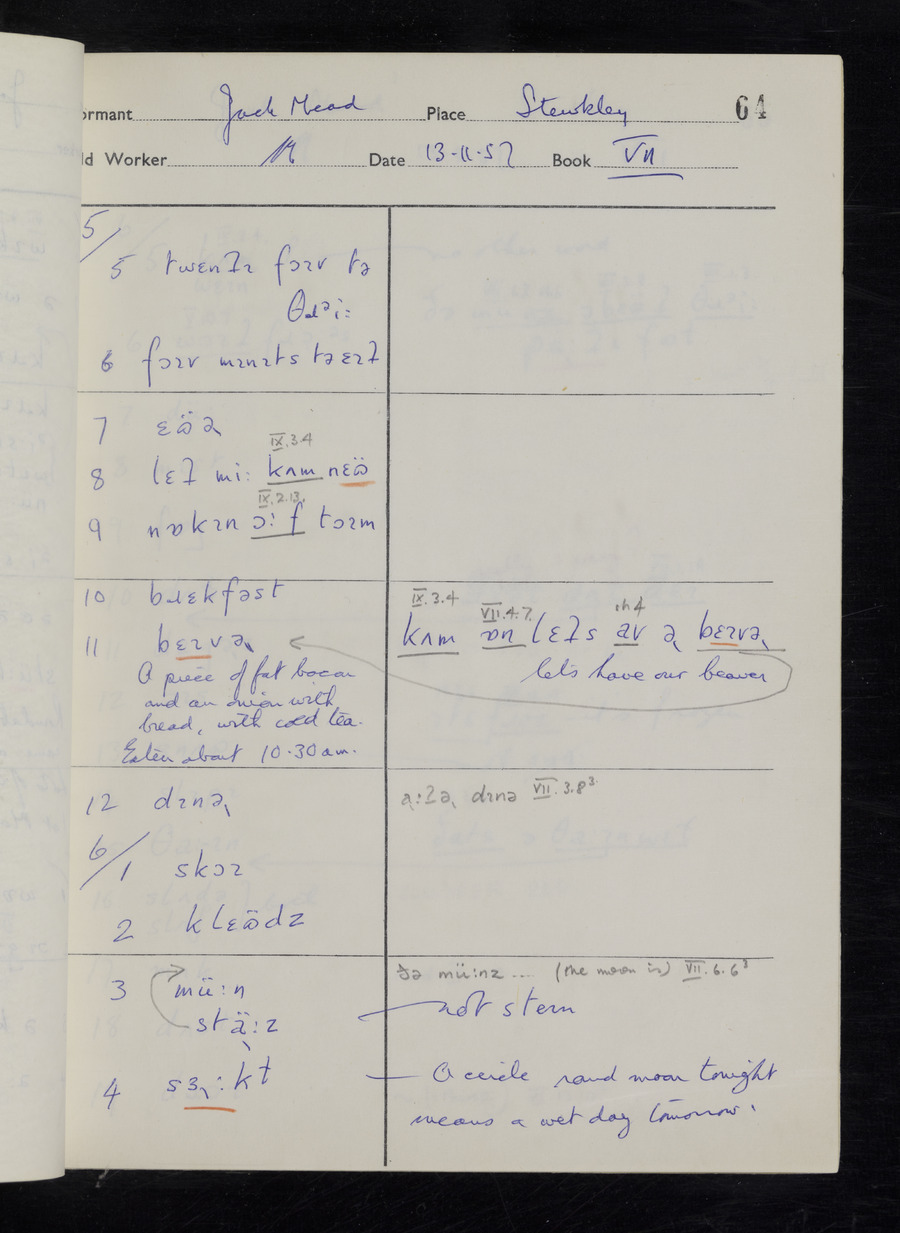 ormant Jack Mead Place Stewkley 64
ld Worker Date 13-11-57 Book VII
5/
5 twɛnʔɪ fɔɪv tə
θɹəi:
6 fɔɪv mɪnɪts tə ɛɪʔ
7 ɛɷ̈ə
IX.3.4
8 lɛʔ mi: kʌm nɛɷ̈
IX.2.13.
9 nɒkɪn ɔ:f tɔɪm
10 bɹɛkfəst
IX.3.4 VII.4.7. ıh 4
kʌm ɒn lɛʔs av ə bɛɪvə
11 bɛɪvə
let's have our beaver
A piece of fat bacon
and an onion with
bread, with cold tea.
Eaten about 10.30 am.
12 dɪnə
a:ʔə dɪnə VII.3.8³
6/
1 skɔɪ
2 klɛɷ̈dz
3 mü:n
ðə mü:nz .... (the moon is) VII.6.6³
stä:z
not stern
4 sɜ:kt
A circle round moon tonight
means a wet day tomorrow.